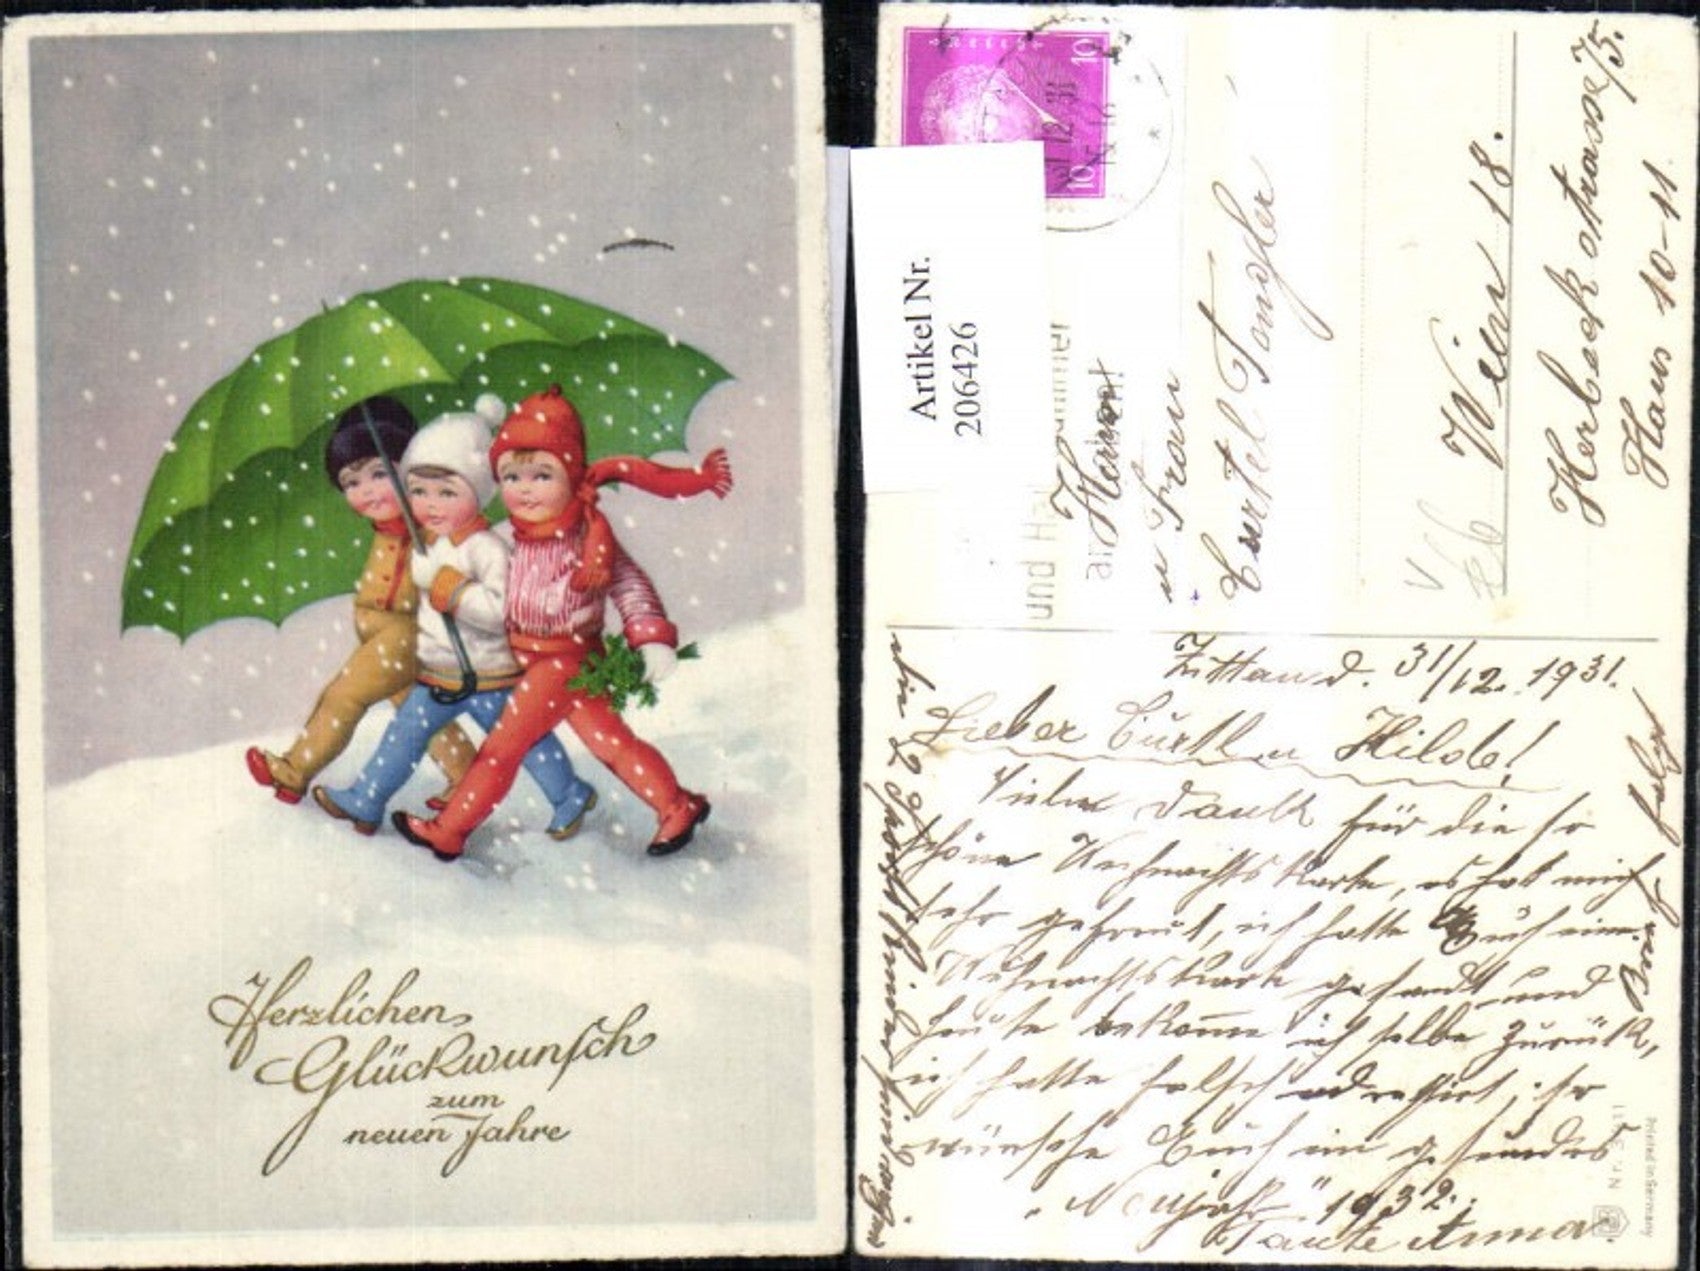 Herzlichen
Glückwunsch
zum
neuen Jahre
Artikel Nr.
206426
10
10
und
Herrn
u Frau
Curtel Tangler
Wien 18.
Herbeckstrasse 75.
Haus 10-11
Zittau d. 31/12. 1931.
Lieber Curtl u Hilda!
Vielen Dank für die so
schöne Weihnachtskarte, es hat mich
sehr gefreut, ich hatte Euch eine
Weihnachtskarte gesandt und
heute bekomme ich selbe zurück,
ich hatte falsch adressirt, so
wünsche Euch ein gesundes
"Neujahr" 1932.
Tante Anna.
Brief folgt
die 2
Nr.
Printed in Germany